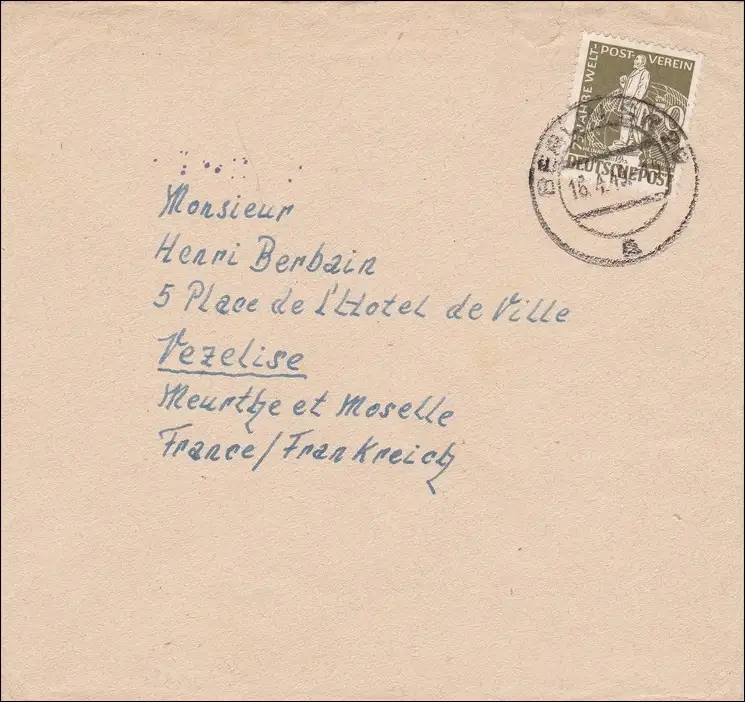 75 JAHRE WELT-POST-VEREIN
50
DEUTSCHE POST
BERLIN
a
Monsieur
Henri Berbain
5 Place de l'Hotel de Ville
Vezelise
Meurthe et Moselle
France/Frankreich